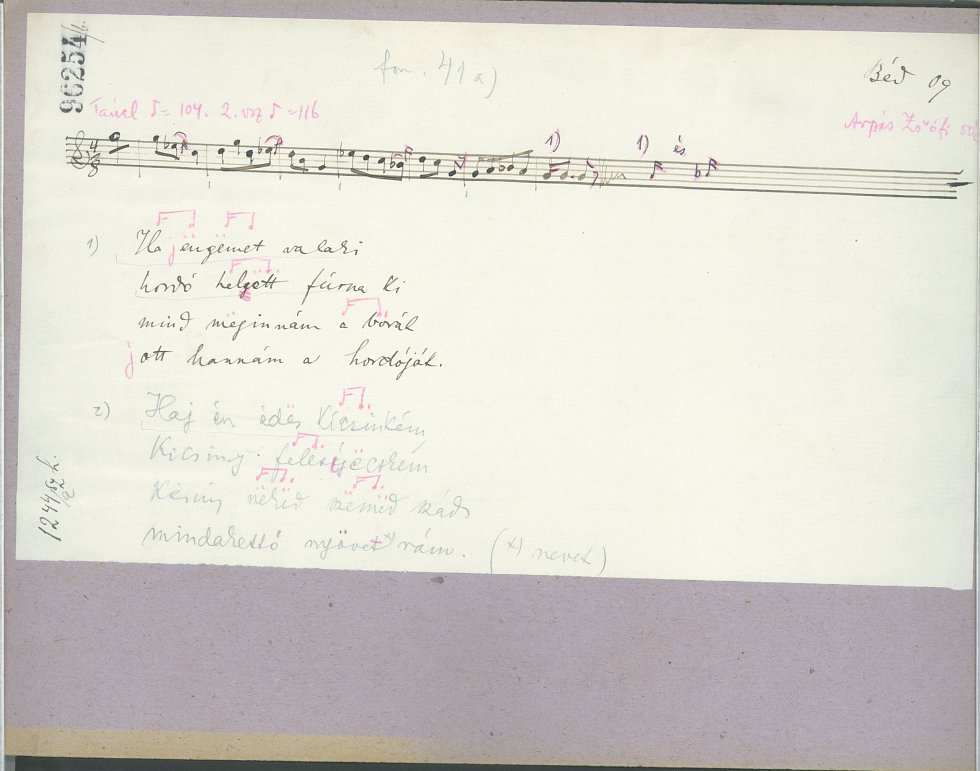 96254/b.
fon. 41 a)
Béd 09
Táncl ♪= 104. 2. vsz ♪ =116
Arpás Zsófi
4/8
1) 1) és
1) Ha jëngëmet valaki
hordó helyëtt fúrna ki
mind mëginnám a borát
jott hannám a hordóját.
2) Haj én édës Kicsinkém
Kicsiny feleségëcském
Kicsiny nékëd szëmëd szád
mindakettő nyövet x) rám. (x) nevet)
1244 sz. h.